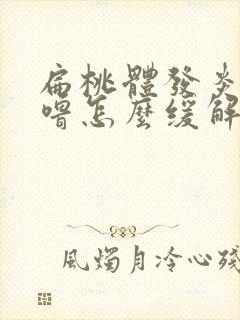 扁桃體發炎
嘈怎麼缓解
風燭月冷心殘